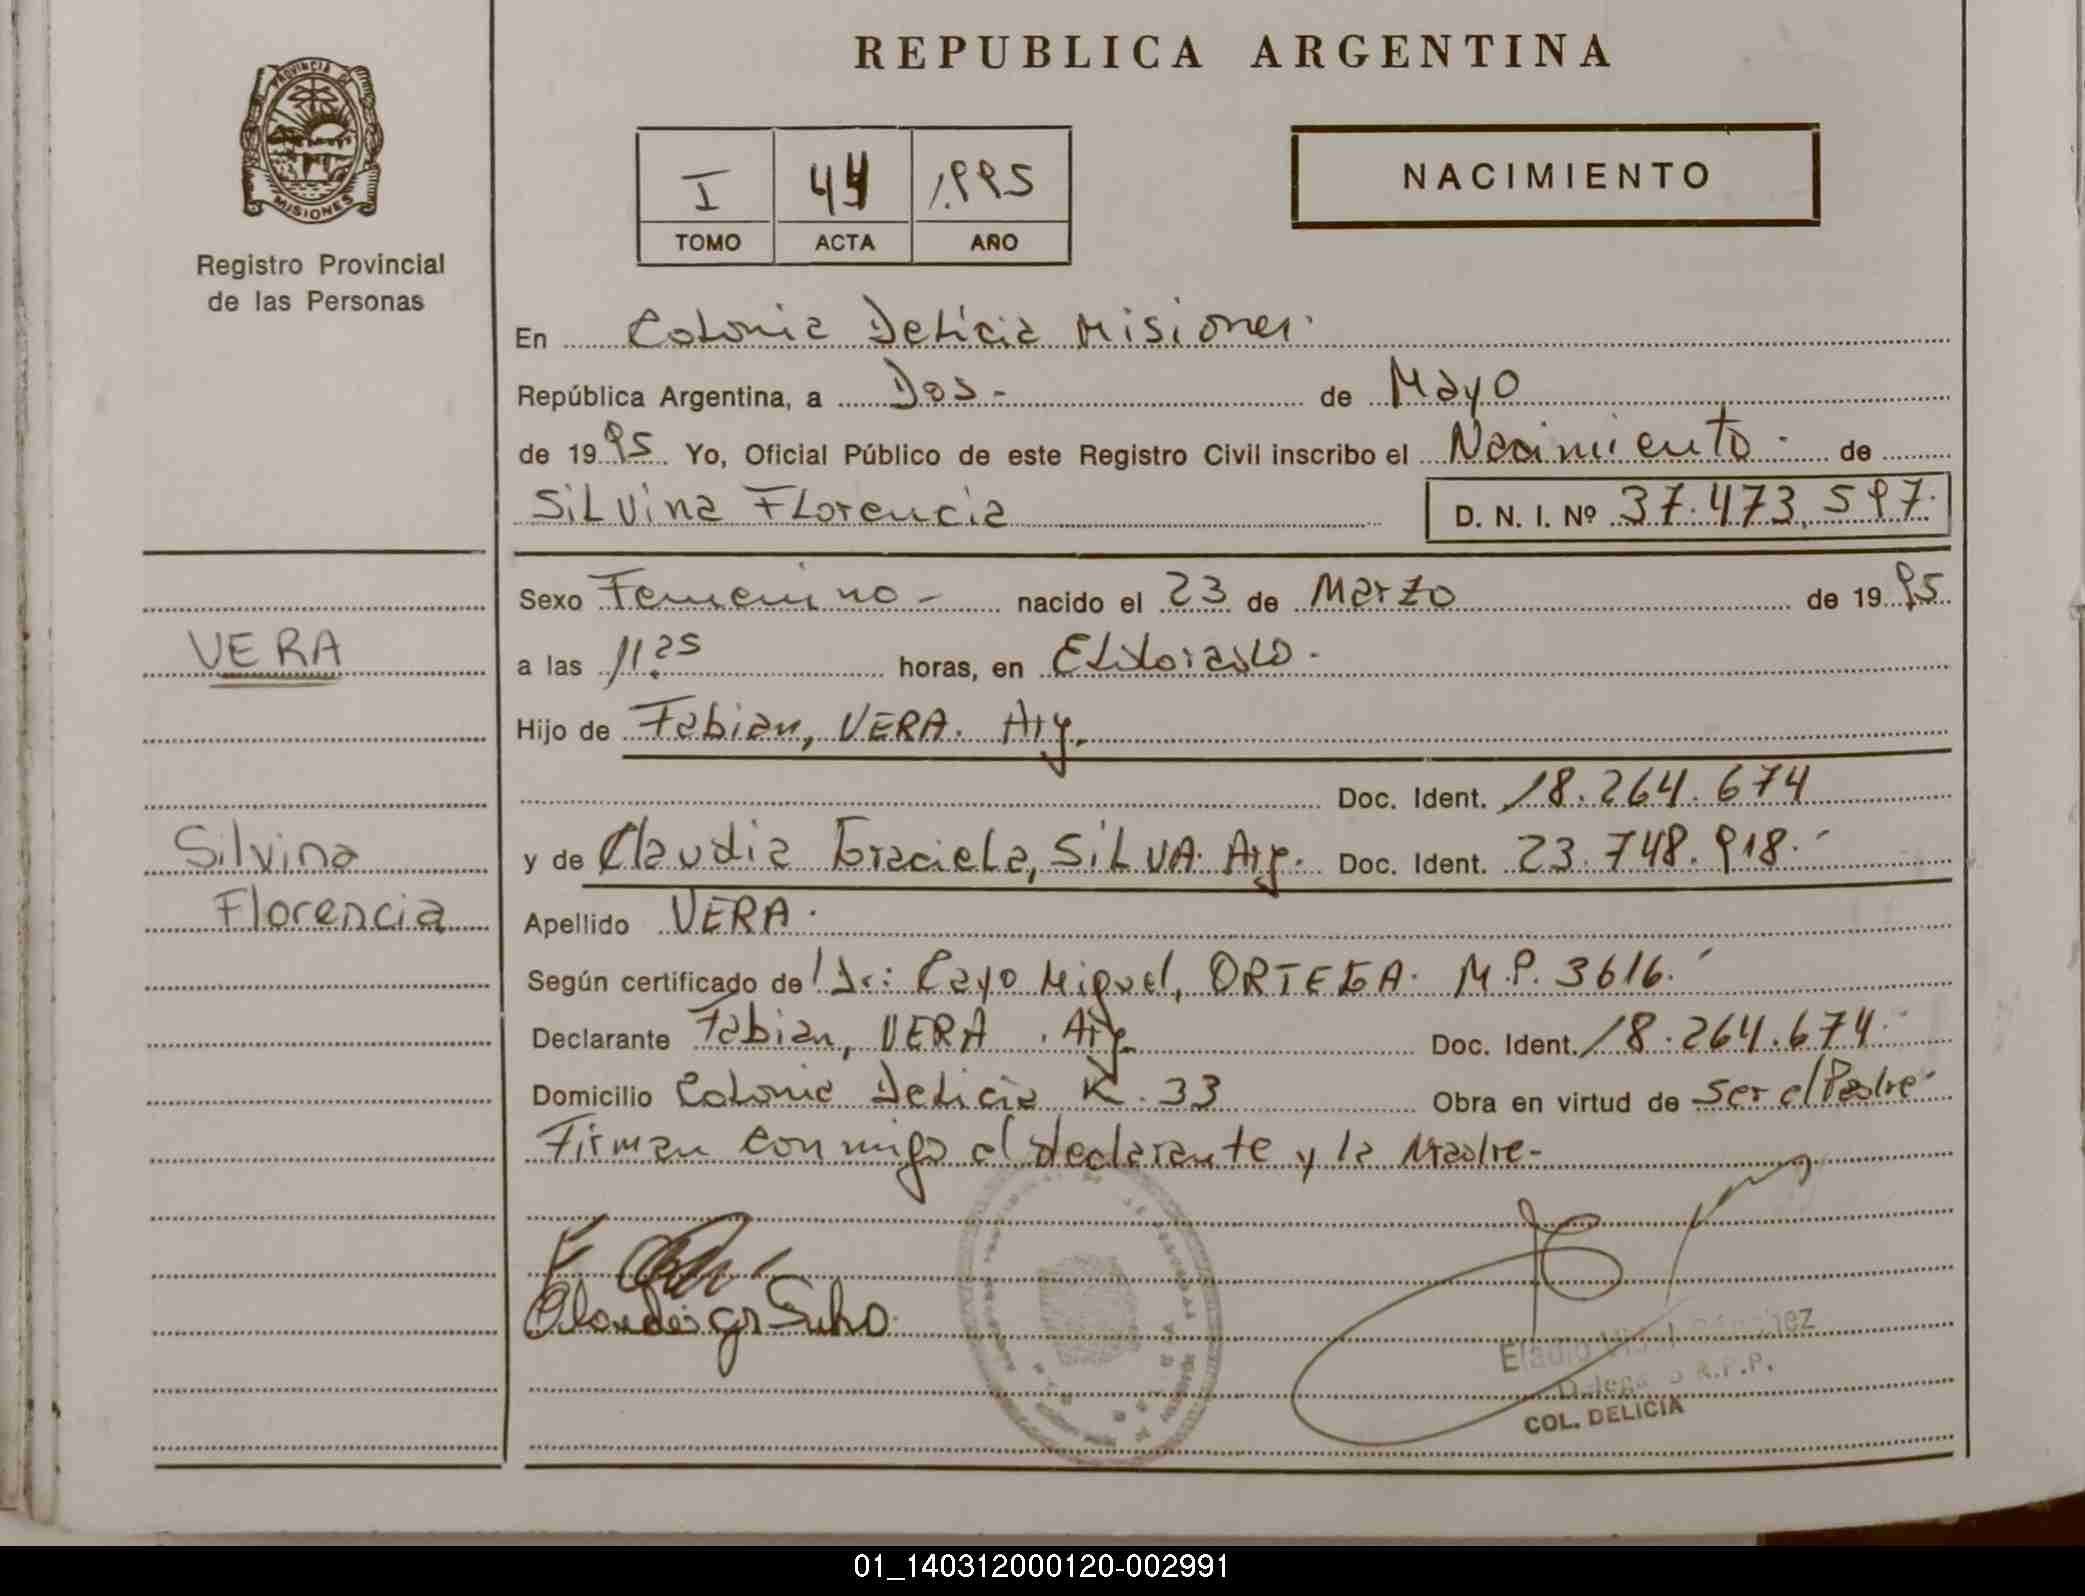 REPUBLICA ARGENTINA
PROVINCIA DE
MISIONES
Registro Provincial
de las Personas
I 44 1.995
TOMO ACTA AÑO
NACIMIENTO
En Colonia Delicia Misiones.
República Argentina, a Dos - de Mayo
de 1995 Yo, Oficial Público de este Registro Civil inscribo el Nacimiento - de
Silvina Florencia D. N. I. Nº 37.473.597.
Sexo Femenino - nacido el 23 de Marzo de 1995
VERA
a las 11.25 horas, en Eldorado -
Hijo de Fabian, VERA. Arg.
Doc. Ident. 18.264.674
Silvina
y de Claudia Graciela, SILVA. Arg. Doc. Ident. 23.748.918.
Florencia
Apellido VERA.
Según certificado de Dr: Cayo Miguel, ORTEGA. M.P. 3616.
Declarante Fabian, VERA. Arg. Doc. Ident. 18.264.674.
Domicilio Colonia Delicia K. 33 Obra en virtud de ser el Padre
Firman conmigo el declarante y la Madre-
Eladio
R.P.P.
COL. DELICIA
01_140312000120-002991